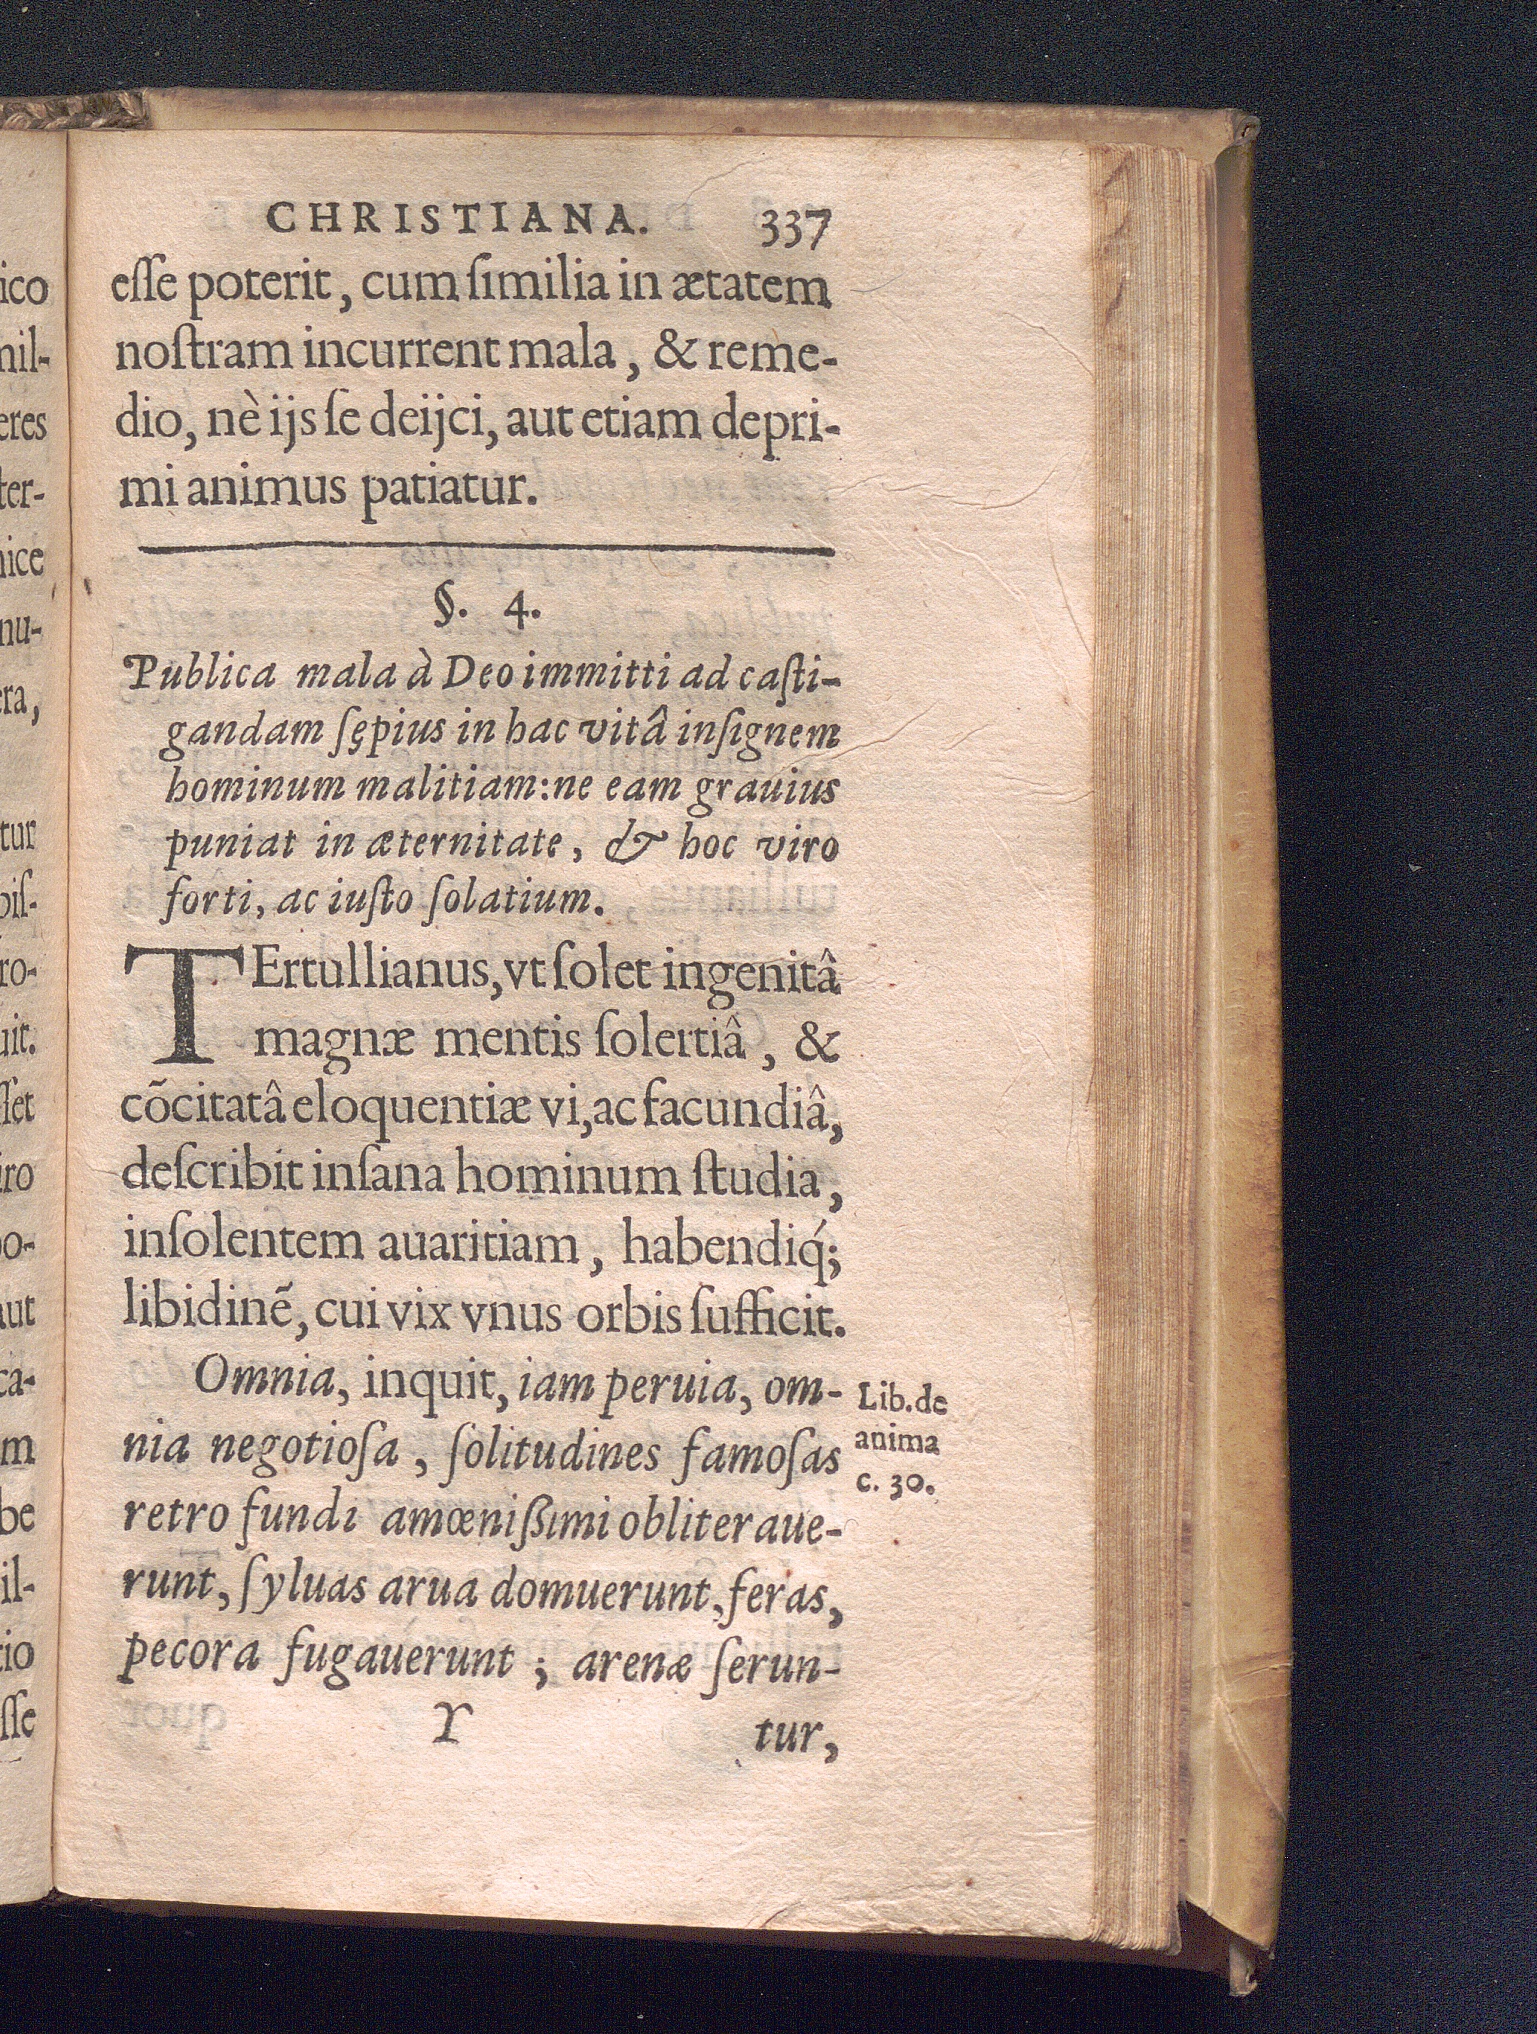 CHRISTIANA. 337
eſſe poterit, cum ſimilia in ætatem
noſtram incurrent mala, & reme-
dio, nè ijs ſe deijci, aut etiam depri-
mi animus patiatur.
§. 4.
Publica mala à Deo immitti ad caſti-
gandam ſępius in hac vitâ inſignem
hominum malitiam: ne eam grauius
puniat in æternitate, & hoc viro
forti, ac iuſto ſolatium.
TErtullianus, vt ſolet ingenitâ
magnæ mentis ſolertiâ, &
cõcitatâ eloquentiæ vi, ac facundiâ,
deſcribit inſana hominum ſtudia,
inſolentem auaritiam, habendiq́;
libidinẽ, cui vix vnus orbis ſufficit.
Omnia, inquit, iam peruia, om-
nia negotioſa, ſolitudines famoſas
retro fundi amœniſſimi obliteraue-
runt, ſyluas arua domuerunt, feras,
pecora fugauerunt; arenæ ſerun-
Y tur,
Lib. de
anima
c. 30.
ico
mil-
eres
ter-
nice
nu-
era,
tur
biſ-
ro-
uit.
ſſet
iro
po-
aut
ca-
m
be
il-
tio
ſſe